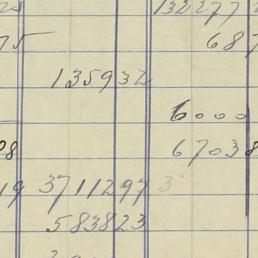 132277
75 687
135932
6000
08 67038
19 3711297 3
583823